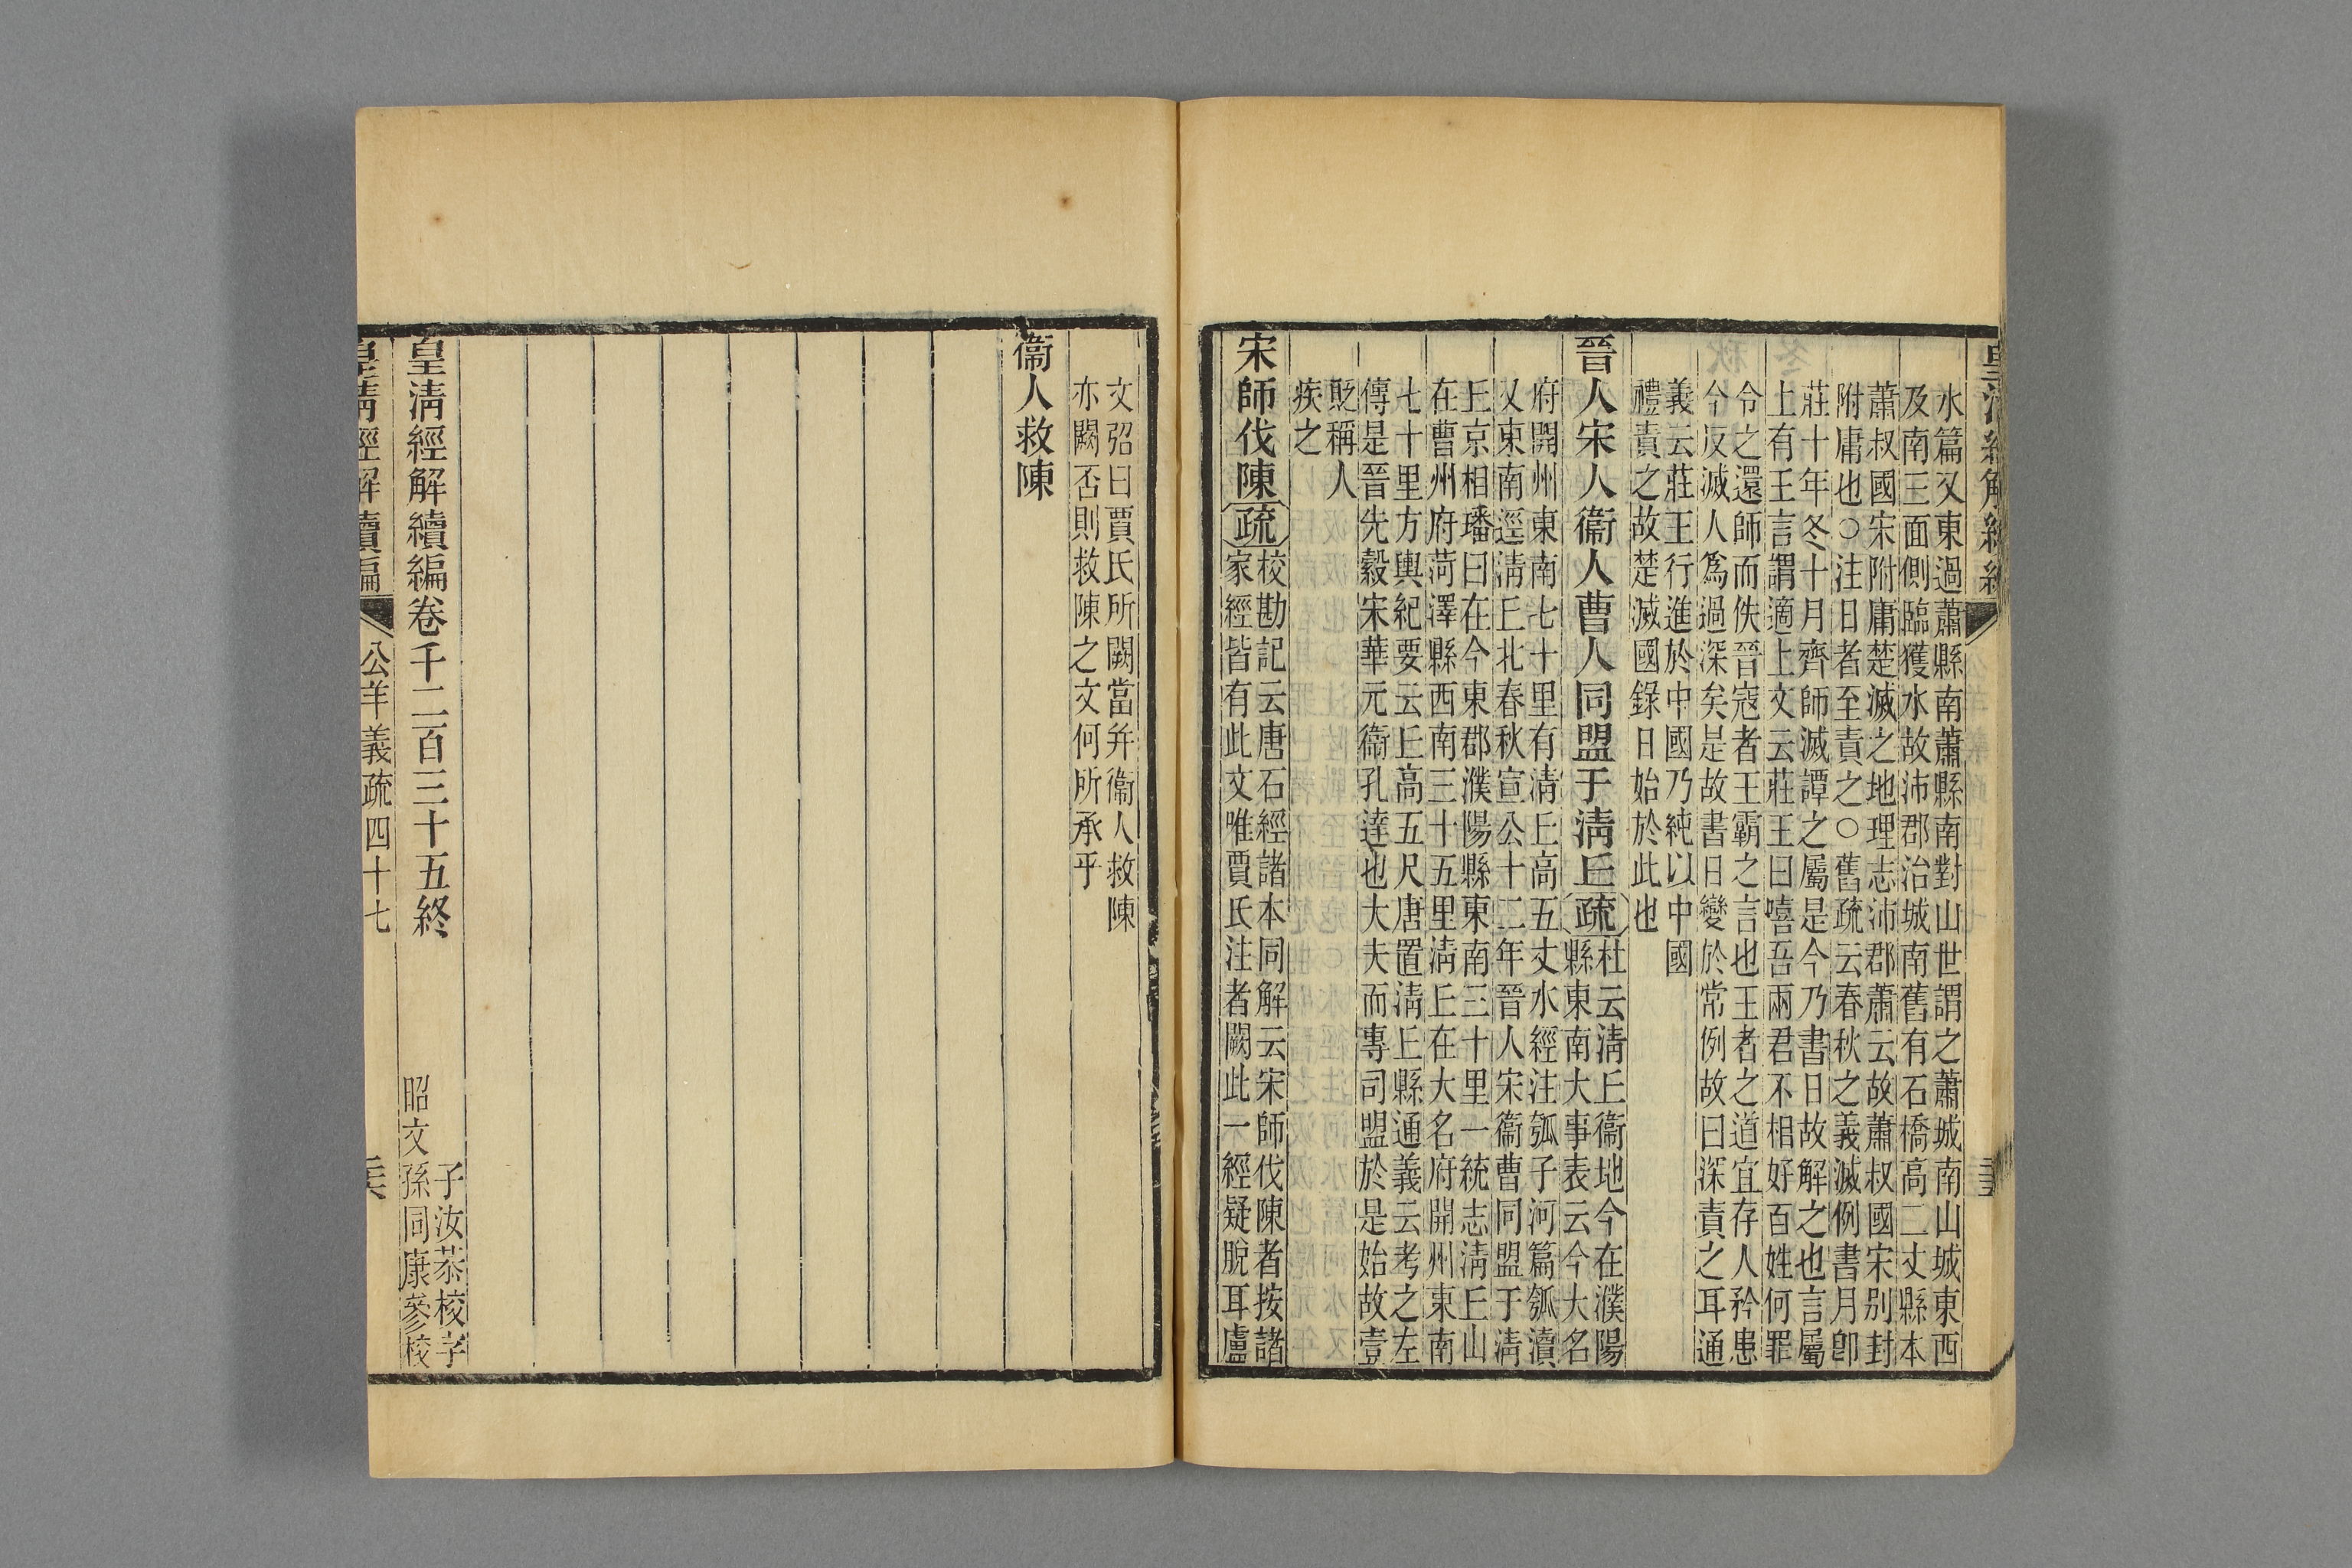 皇清經解續編
水篇又東過蕭縣南蕭縣南對山世謂之蕭城南山城東西
及南三面側臨獲水故沛郡治城南舊有石橋高二丈縣本
蕭叔國宋附庸楚滅之地理志沛郡蕭云故蕭叔國宋别封
附庸也○注日者至責之○舊疏云春秋之義滅例書月卽
莊十年冬十月齊師滅譚之屬是今乃書日故解之也言屬
上有王言謂適上文云莊王曰嘻吾兩君不相好百姓何罪
令之還師而佚晉寇者王霸之言也王者之道宜存人矜患
今反滅人爲過深矣是故書日變於常例故曰深責之耳通
義云莊王行進於中國乃純以中國
禮責之故楚滅國錄日始於此也
晉人宋人衞人曹人同盟于淸丘疏
杜云淸丘衞地今在濮陽
縣東南大事表云今大名
府開州東南七十里有淸丘高五丈水經注瓠子河篇瓠瀆
又東南逕淸丘北春秋宣公十二年晉人宋衞曹同盟于淸
丘京相璠曰在今東郡濮陽縣東南三十里一統志淸丘山
在曹州府菏澤縣西南三十五里淸丘在大名府開州東南
七十里方輿紀要云丘高五尺唐置淸丘縣通義云考之左
傳是晉先縠宋華元衞孔達也大夫而專司盟於是始故壹
貶稱人
疾之
宋師伐陳疏
校勘記云唐石經諸本同解云宋師伐陳者按諸
家經皆有此文唯賈氏注者闕此一經疑脫耳盧
文弨曰賈氏所闕當并衞人救陳
亦闕否則救陳之文何所承乎
衞人救陳
皇淸經解續編卷千二百三十五終
子汝恭校字
昭文孫同康參校
皇淸經解續編
公羊義疏四十七